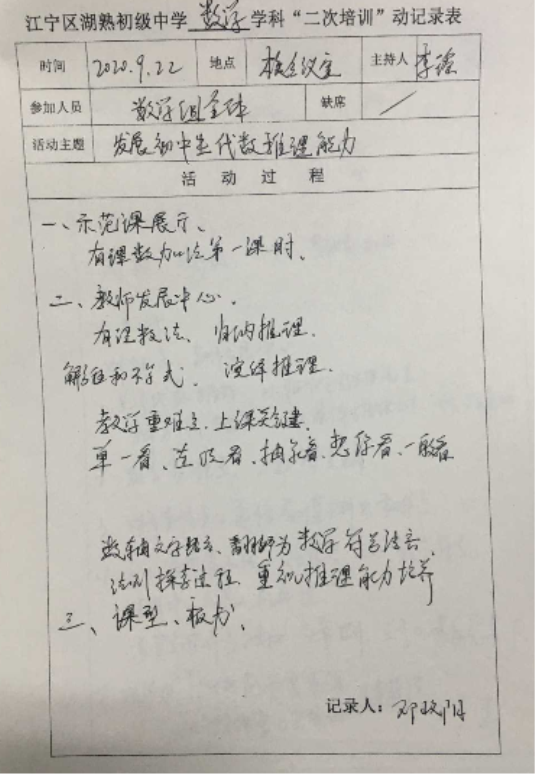 江宁区湖熟初级中学 数学 学科“二次培训”动记录表
时间 2020.9.22 地点 校会议室 主持人 李
参加人员 数学组全体 缺席 /
活动主题 发展初中生代数推理能力
活动过程
一、示范课展示、
有理数加法第一课时、
二、教师发展中心.
有理数法、归纳推理.
解和不等式. 演绎推理.
教学重难点、上课关键.
单一看、连及看、抽象看、一般看
数轴文字语言、翻译为数学符号语言、
法则探索过程. 重视推理能力培养
三、课型、板书、
记录人：邓